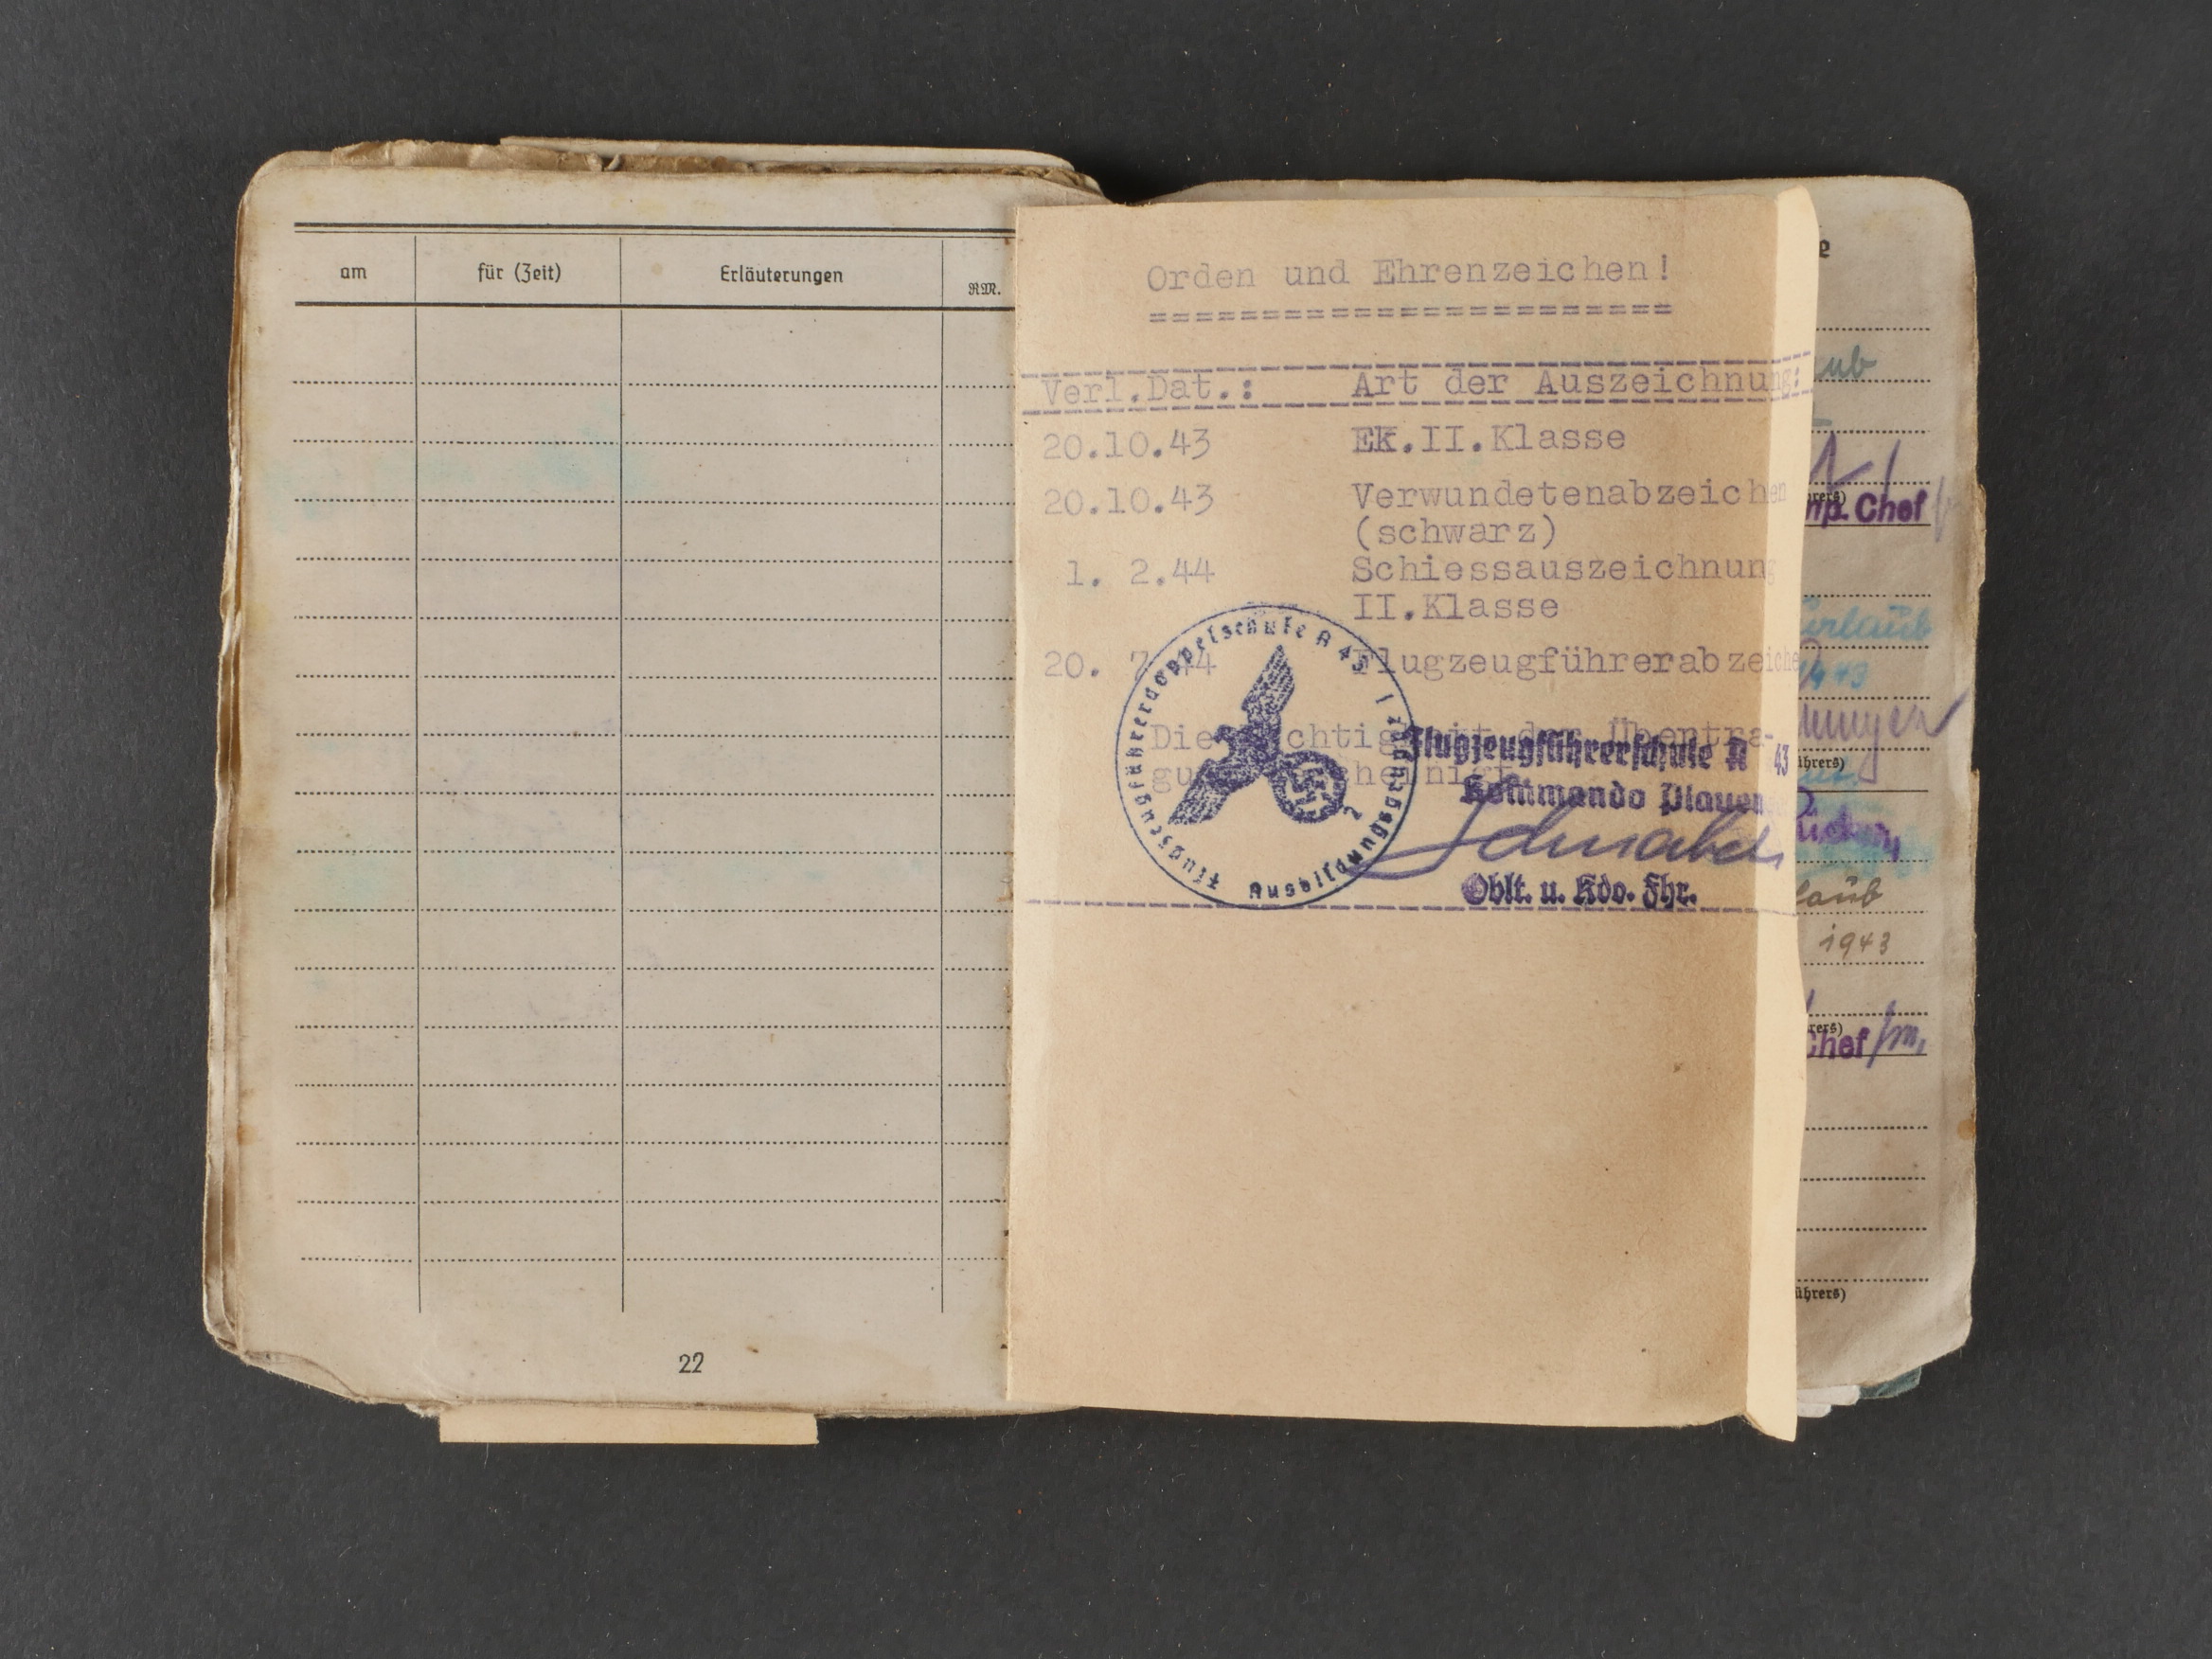 am für (Zeit) Erläuterungen RM.
22
Orden und Ehrenzeichen!
Verl.Dat.: Art der Auszeichnung:
20.10.43 EK.II.Klasse
20.10.43 Verwundetenabzeichen
(schwarz)
1. 2.44 Schiessauszeichnung
II.Klasse
20. 7.44 Flugzeugführerabzeiche
Die htigkeit der Übertra-
gu heinigt
Flugzeugführerdoppelschule A 43
Ausbildungs
2
Flugzeugführerschule A 43
Kommando Plauen
Schnabel
Oblt. u. Kdo. Fhr.
e
ub
hrers)
mp. Chef
Urlaub
1943
ührers)
laub
1943
rers)
Chef
ührers)